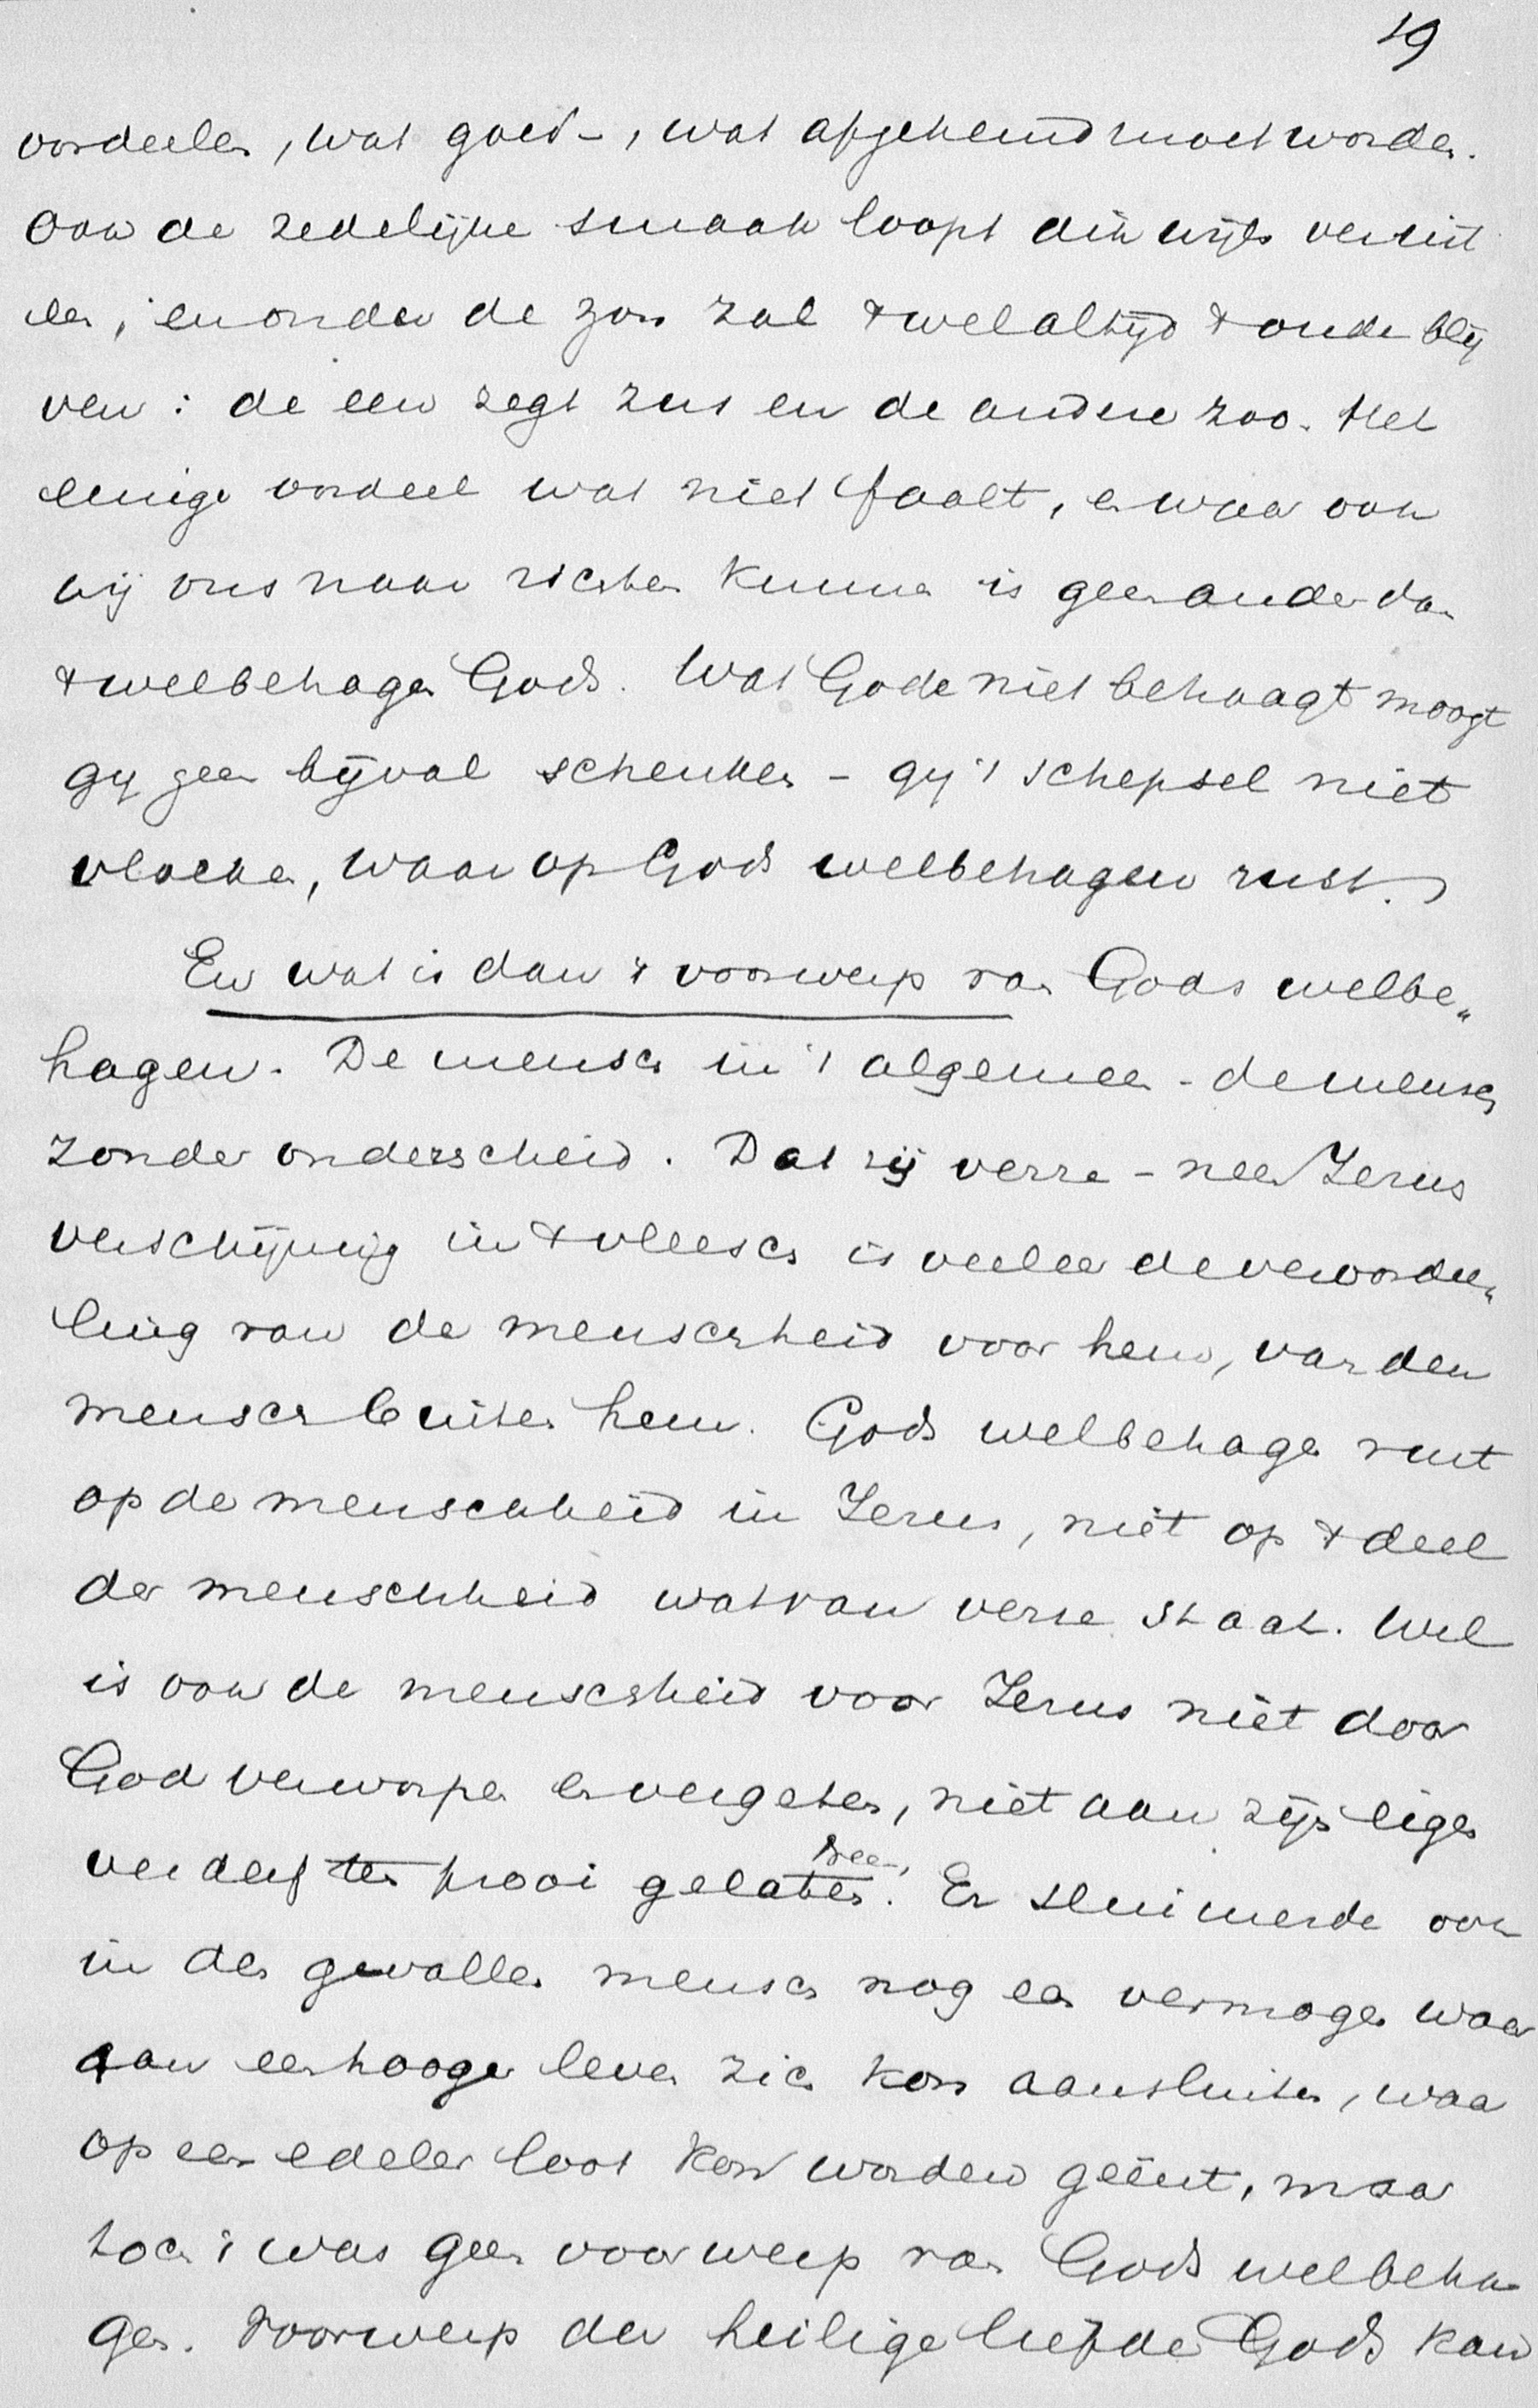 19
oordeelen, wat goed-, wat afgekeurd moet worden.
Ook de zedelijke smaak loopt dikwijls verschil
len, en onder de zon zal 't wel altijd 't oude blij
ven: de een zegt zus en de andere zoo. Het
eenige oordeel wat niet faalt, en waar ook
wij ons naar richten kunnen is geen ander dan
't welbehagen Gods. Wat Gode niet behaagt moogt
gij geen bijval schenken - gij 't schepsel niet
vloeken, waarop Gods welbehagen rust.
En wat is dan 't voorwerp van Gods welbe„
hagen. De mensch in 't algemeen - de mensch
zonder onderscheid. Dat zij verre - neen Jezus
verschijning in 't vleesch is veeleer de veroordee„
ling van de menschheid voor hem, van den
mensch buiten hem. Gods welbehagen rust
op de menschheid in Jezus, niet op 't deel
der menschheid wat van verre staat. Wel
is ook de menschheid voor Jezus niet door
God verworpen en vergeten, niet aan zijn eigen
verderf ten prooi gelaten. Neen, Er sluimerde ook
in den gevallen mensch nog een vermogen waar
aan een hooger leven zich kon aansluiten, waar
op een edeler loot kon worden geënt, maar
toch 't was geen voorwerp van Gods welbeha
gen. Voorwerp der heilige liefde Gods kan